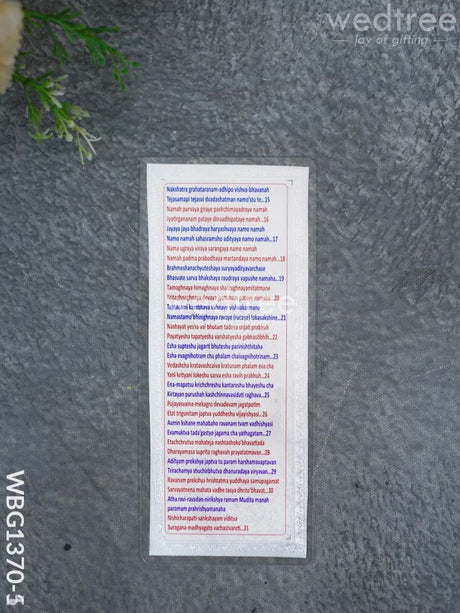 wedtree
joy of gifting
Nakshatra grahataranam-adhipo vishva-bhavanah
Tejasamapi tejasvi dvadashatman namo'stu te...15
Namah purvaya giraye pashchimayadraye namah
Jyotirgananam pataye dinaadhipataye namah...16
Jayaya jaya bhadraya haryashvaya namo namah
Namo namah sahasramsho adityaya namo namah...17
Nama ugraya viraya sarangaya namo namah
Namah padma prabodhaya martandaya namo namah...18
Brahmeshanachyuteshaya suryayadityavarchase
Bhasvate sarva bhakshaya raudraya vapushe namaha...19
Tamoghnaya himaghnaya shatrughnayamitatmane
devaya jyotisham pataye namaha...20
vahnaye vishvakarmane
Namastamo'bhinighnaya ravaye (rucaye) lokasakshine...21
Nashayat yesha vai bhutam tadeva srijati prabhuh
Payatyesha tapatyesha varshatyesha gabhastibhih...22
Esha supteshu jagarti bhuteshu parinishthitaha
Esha evagnihotram cha phalam chaivagnihotrinam...23
Vedashcha kratavashcaiva kratunam phalam eva cha
Yani krityani lokeshu sarva esha ravih prabhuh...24
Ena-mapatsu krichchreshu kantareshu bhayeshu cha
Kirtayan purushah kashchinnavasidati raghava...25
Pujayasvaina-mekagro devadevam jagatpatim
Etat trigunitam japtva yuddheshu vijayishyasi...26
Asmin kshane mahabaho ravanam tvam vadhishyasi
Evamuktva tada'gastyo jagama cha yathagatam...27
Etachchrutva mahateja nashtashoko'bhavattada
Dharayamasa suprito raghavah prayatatmavan...28
Adityam prekshya japtva tu param harshamavaptavan
Trirachamya shuchirbhutva dhanuradaya viryavan...29
Ravanam prekshya hrishtatma yuddhaya samupagamat
Sarvayatnena mahata vadhe tasya dhrito'bhavat...30
Atha ravi-ravadan-nirikshya ramam Mudita manah
paramam prahrishyamanaha
Nishicharapati-sankshayam viditva
Suragana-madhyagato vachastvareti...31
WBG1370-1